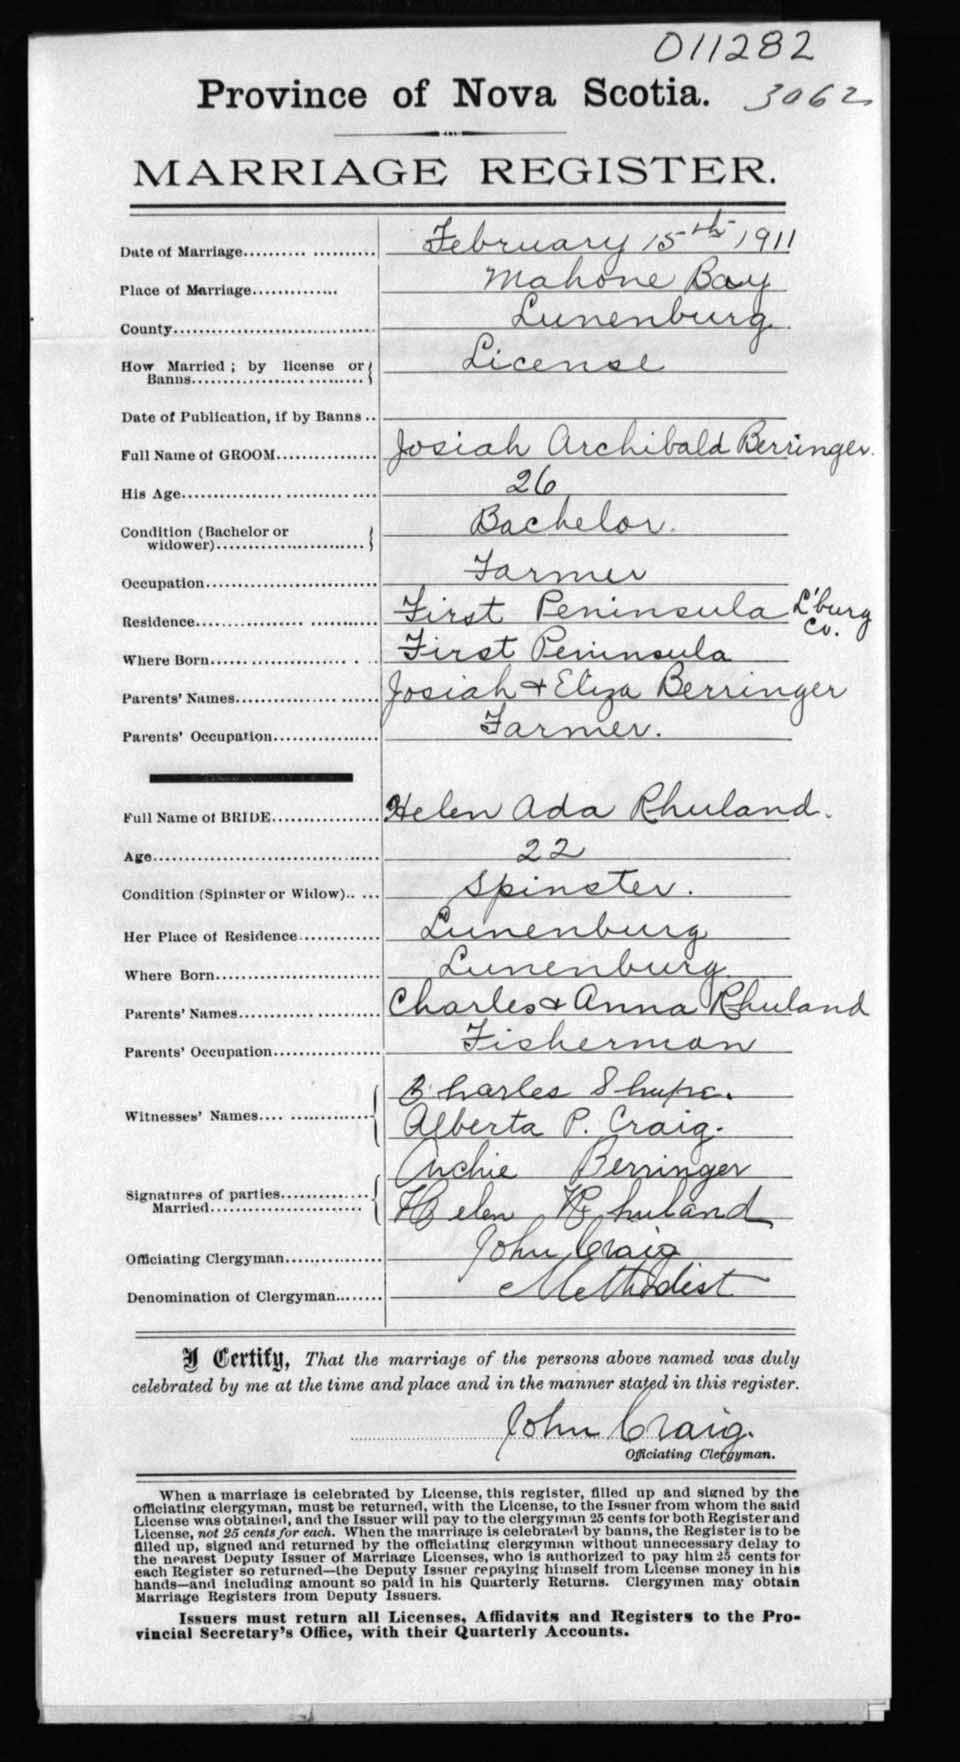 011282
Province of Nova Scotia. 3062
MARRIAGE REGISTER.
Date of Marriage.......... February 15th 1911
Place of Marriage.............. Mahone Bay
County.............................. Lunenburg
How Married ; by license or License
Banns..............................
Date of Publication, if by Banns ..
Full Name of GROOM................ Josiah Archibald Berringer.
His Age.............................. 26
Condition (Bachelor or Bachelor.
widower)........................
Occupation.......................... Farmer
Residence............................ First Peninsula L'burg Co.
Where Born.......................... First Peninsula
Parents' Names..................... Josiah & Eliza Berringer
Parents' Occupation................. Farmer.
Full Name of BRIDE................. Helen Ada Rhuland.
Age.................................... 22
Condition (Spinster or Widow)..... Spinster.
Her Place of Residence............ Lunenburg
Where Born......................... Lunenburg
Parents' Names..................... Charles & Anna Rhuland
Parents' Occupation................ Fisherman
Charles Shupe.
Witnesses' Names....................
Alberta P. Craig.
Archie Berringer
Signatures of parties...............
Married......................... Helen Rhuland
Officiating Clergyman............... John Craig
Denomination of Clergyman........ Methodist
I Certify, That the marriage of the persons above named was duly
celebrated by me at the time and place and in the manner stated in this register.
John Craig.
Officiating Clergyman.
When a marriage is celebrated by License, this register, filled up and signed by the
officiating clergyman, must be returned, with the License, to the Issuer from whom the said
License was obtained, and the Issuer will pay to the clergyman 25 cents for both Register and
License, not 25 cents for each. When the marriage is celebrated by banns, the Register is to be
filled up, signed and returned by the officiating clergyman without unnecessary delay to
the nearest Deputy Issuer of Marriage Licenses, who is authorized to pay him 25 cents for
each Register so returned—the Deputy Issuer repaying himself from License money in his
hands—and including amount so paid in his Quarterly Returns. Clergymen may obtain
Marriage Registers from Deputy Issuers.
Issuers must return all Licenses, Affidavits and Registers to the Pro-
vincial Secretary's Office, with their Quarterly Accounts.